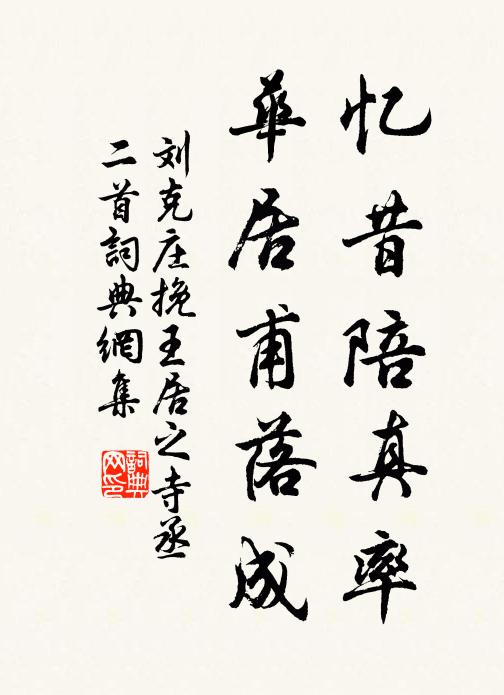 忆昔陪真率
華居甫落成
刘克庄挽王居之寺丞
二首詞典網集
詞典
网印